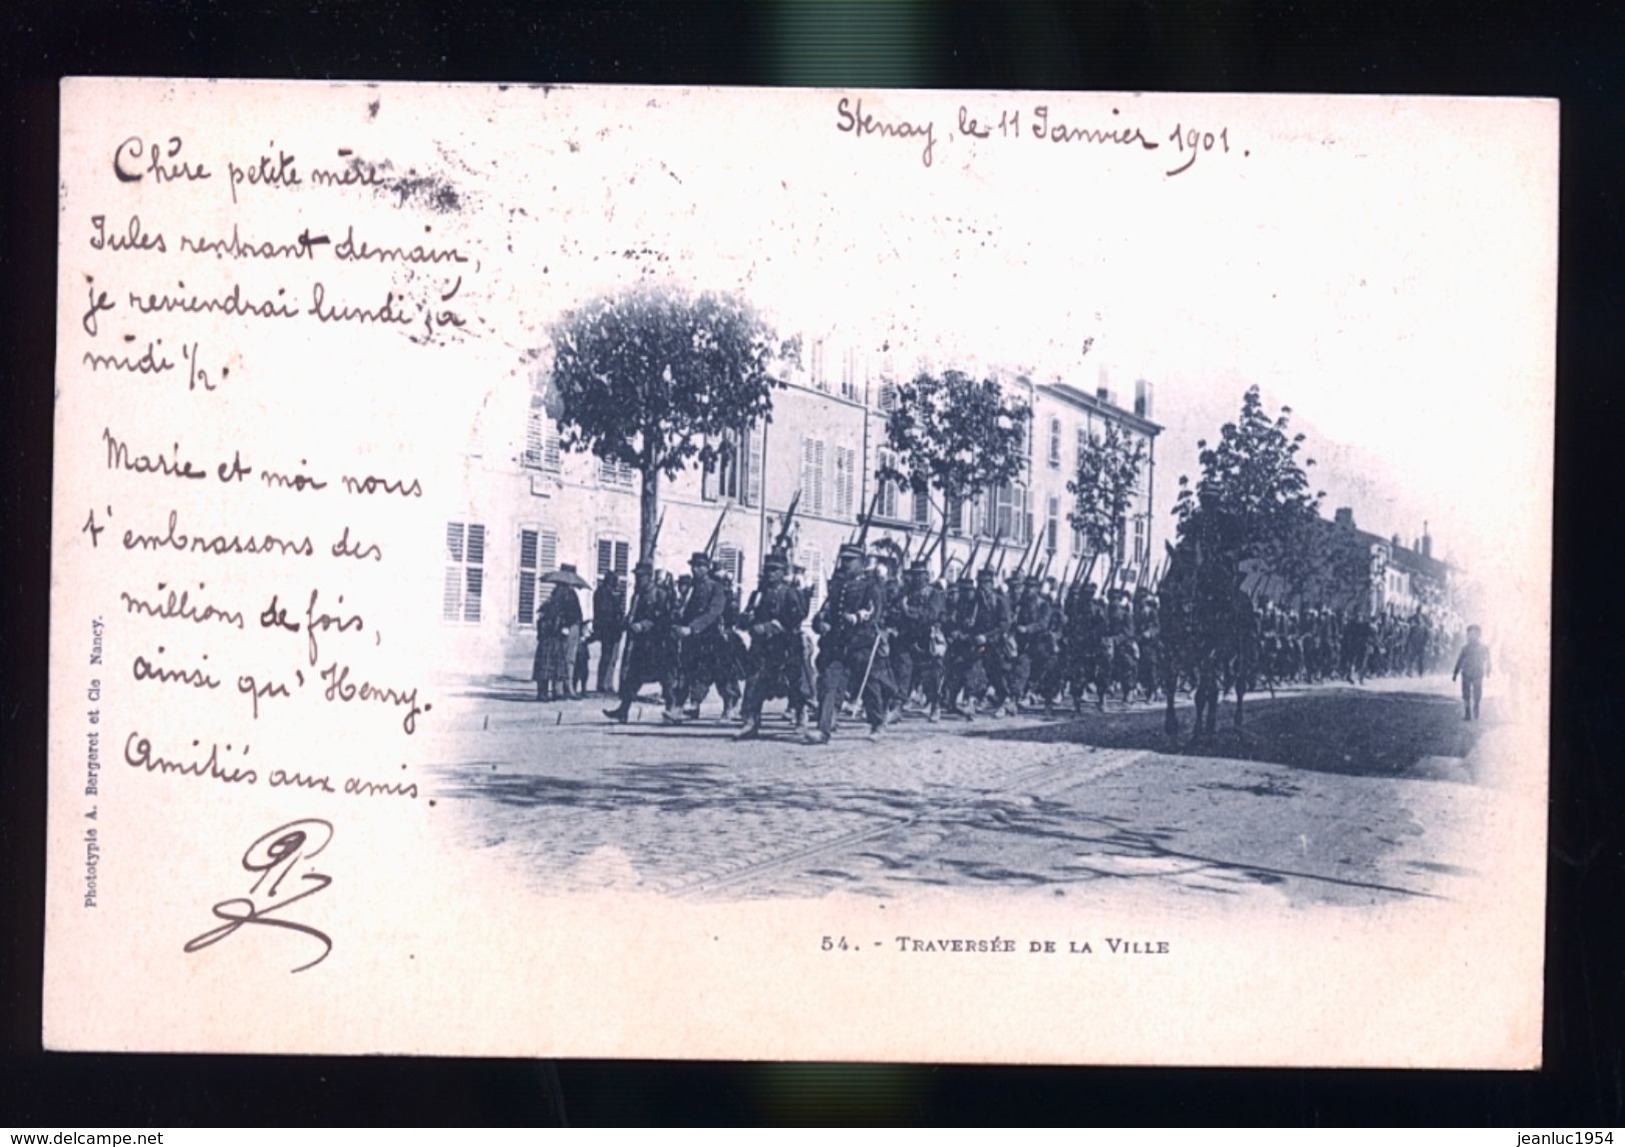 Stenay, le 11 Janvier 1901.
Chère petite mère
Jules rentrant demain,
je reviendrai lundi, à
midi 1/2.
Marie et moi nous
t'embrassons des
millions de fois,
ainsi qu'Henry.
Amitiés aux amis.
Phototypie A. Bergeret et Cie Nancy.
54. - TRAVERSÉE DE LA VILLE
www.delcampe.net
jeanluc1954